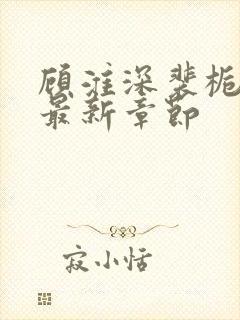 顾淮深裴栀
最新章节
寂小恬